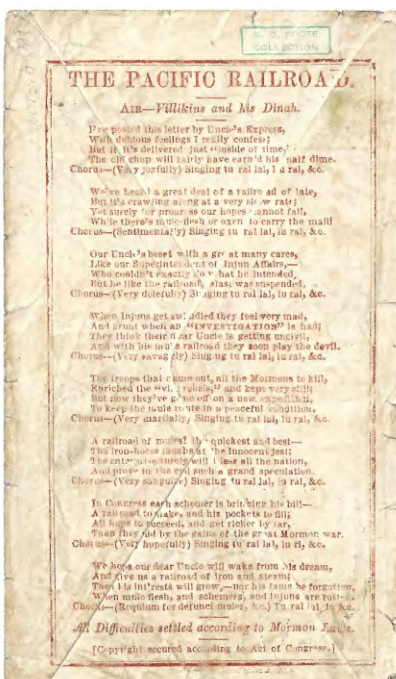 C. C. FOOTE
COLLECTION
THE PACIFIC RAILROAD.
AIR—Villikins and his Dinah.
I've posted this letter by Uncle's Express,
With dubious feelings I really confess;
But if it's delivered just "inside of time,"
The old chap will fairly have earn'd his half dime.
Chorus—(Very joyfully) Singing tu ral lal, lu ral, &c.
We've heard a great deal of a railroad of late,
But it's crawling along at a very slow rate;
Yet surely for progress our hopes cannot fail,
While there's mule-flesh or oxen to carry the mail!
Chorus—(Sentimentally) Singing tu ral lal, lu ral, &c.
Our Uncle's beset with a great many cares,
Like our Superintendent of Injun Affairs,—
Who couldn't exactly do what he intended,
But he like the railroad, alas! was suspended.
Chorus—(Very dolefully) Singing tu ral lal, lu ral, &c.
When Injuns get swindled they feel very mad,
And grunt when an "INVESTIGATION" is had;
They think their dear Uncle is getting uncivil,
And with his mule railroad they soon play the devil.
Chorus—(Very savagely) Singing tu ral lal, lu ral, &c.
The troops that came out, all the Mormons to kill,
Enriched the "vile rebels," and kept very still;
But now they've gone off on a new expedition,
To keep the mule route in a peaceful condition.
Chorus—(Very martially) Singing tu ral lal, lu ral, &c.
A railroad of mules! the quickest and best—
The iron-horse laughs at the innocent jest;
The enterprise surely will bless all the nation,
And prove in the end such a grand speculation.
Chorus—(Very sanguine) Singing tu ral lal, lu ral, &c.
In Congress each schemer is bringing his bill—
A railroad to make, and his pockets to fill;
All hope to succeed, and get richer by far,
Than they did by the gains of the great Mormon war.
Chorus—(Very hopefully) Singing tu ral lal, lu rl, &c.
We hope our dear Uncle will wake from his dream,
And give us a railroad of iron and steam;
Then his int'rests will grow,—nor his fame be forgotten,
When mule flesh, and schemers, and Injuns are rotten.
Chorus—(Requium for defunct mules, &c.) Tu ral lal, lu &c.
All Difficulties settled according to Mormon Laws.
[Copyright secured according to Act of Congress.]